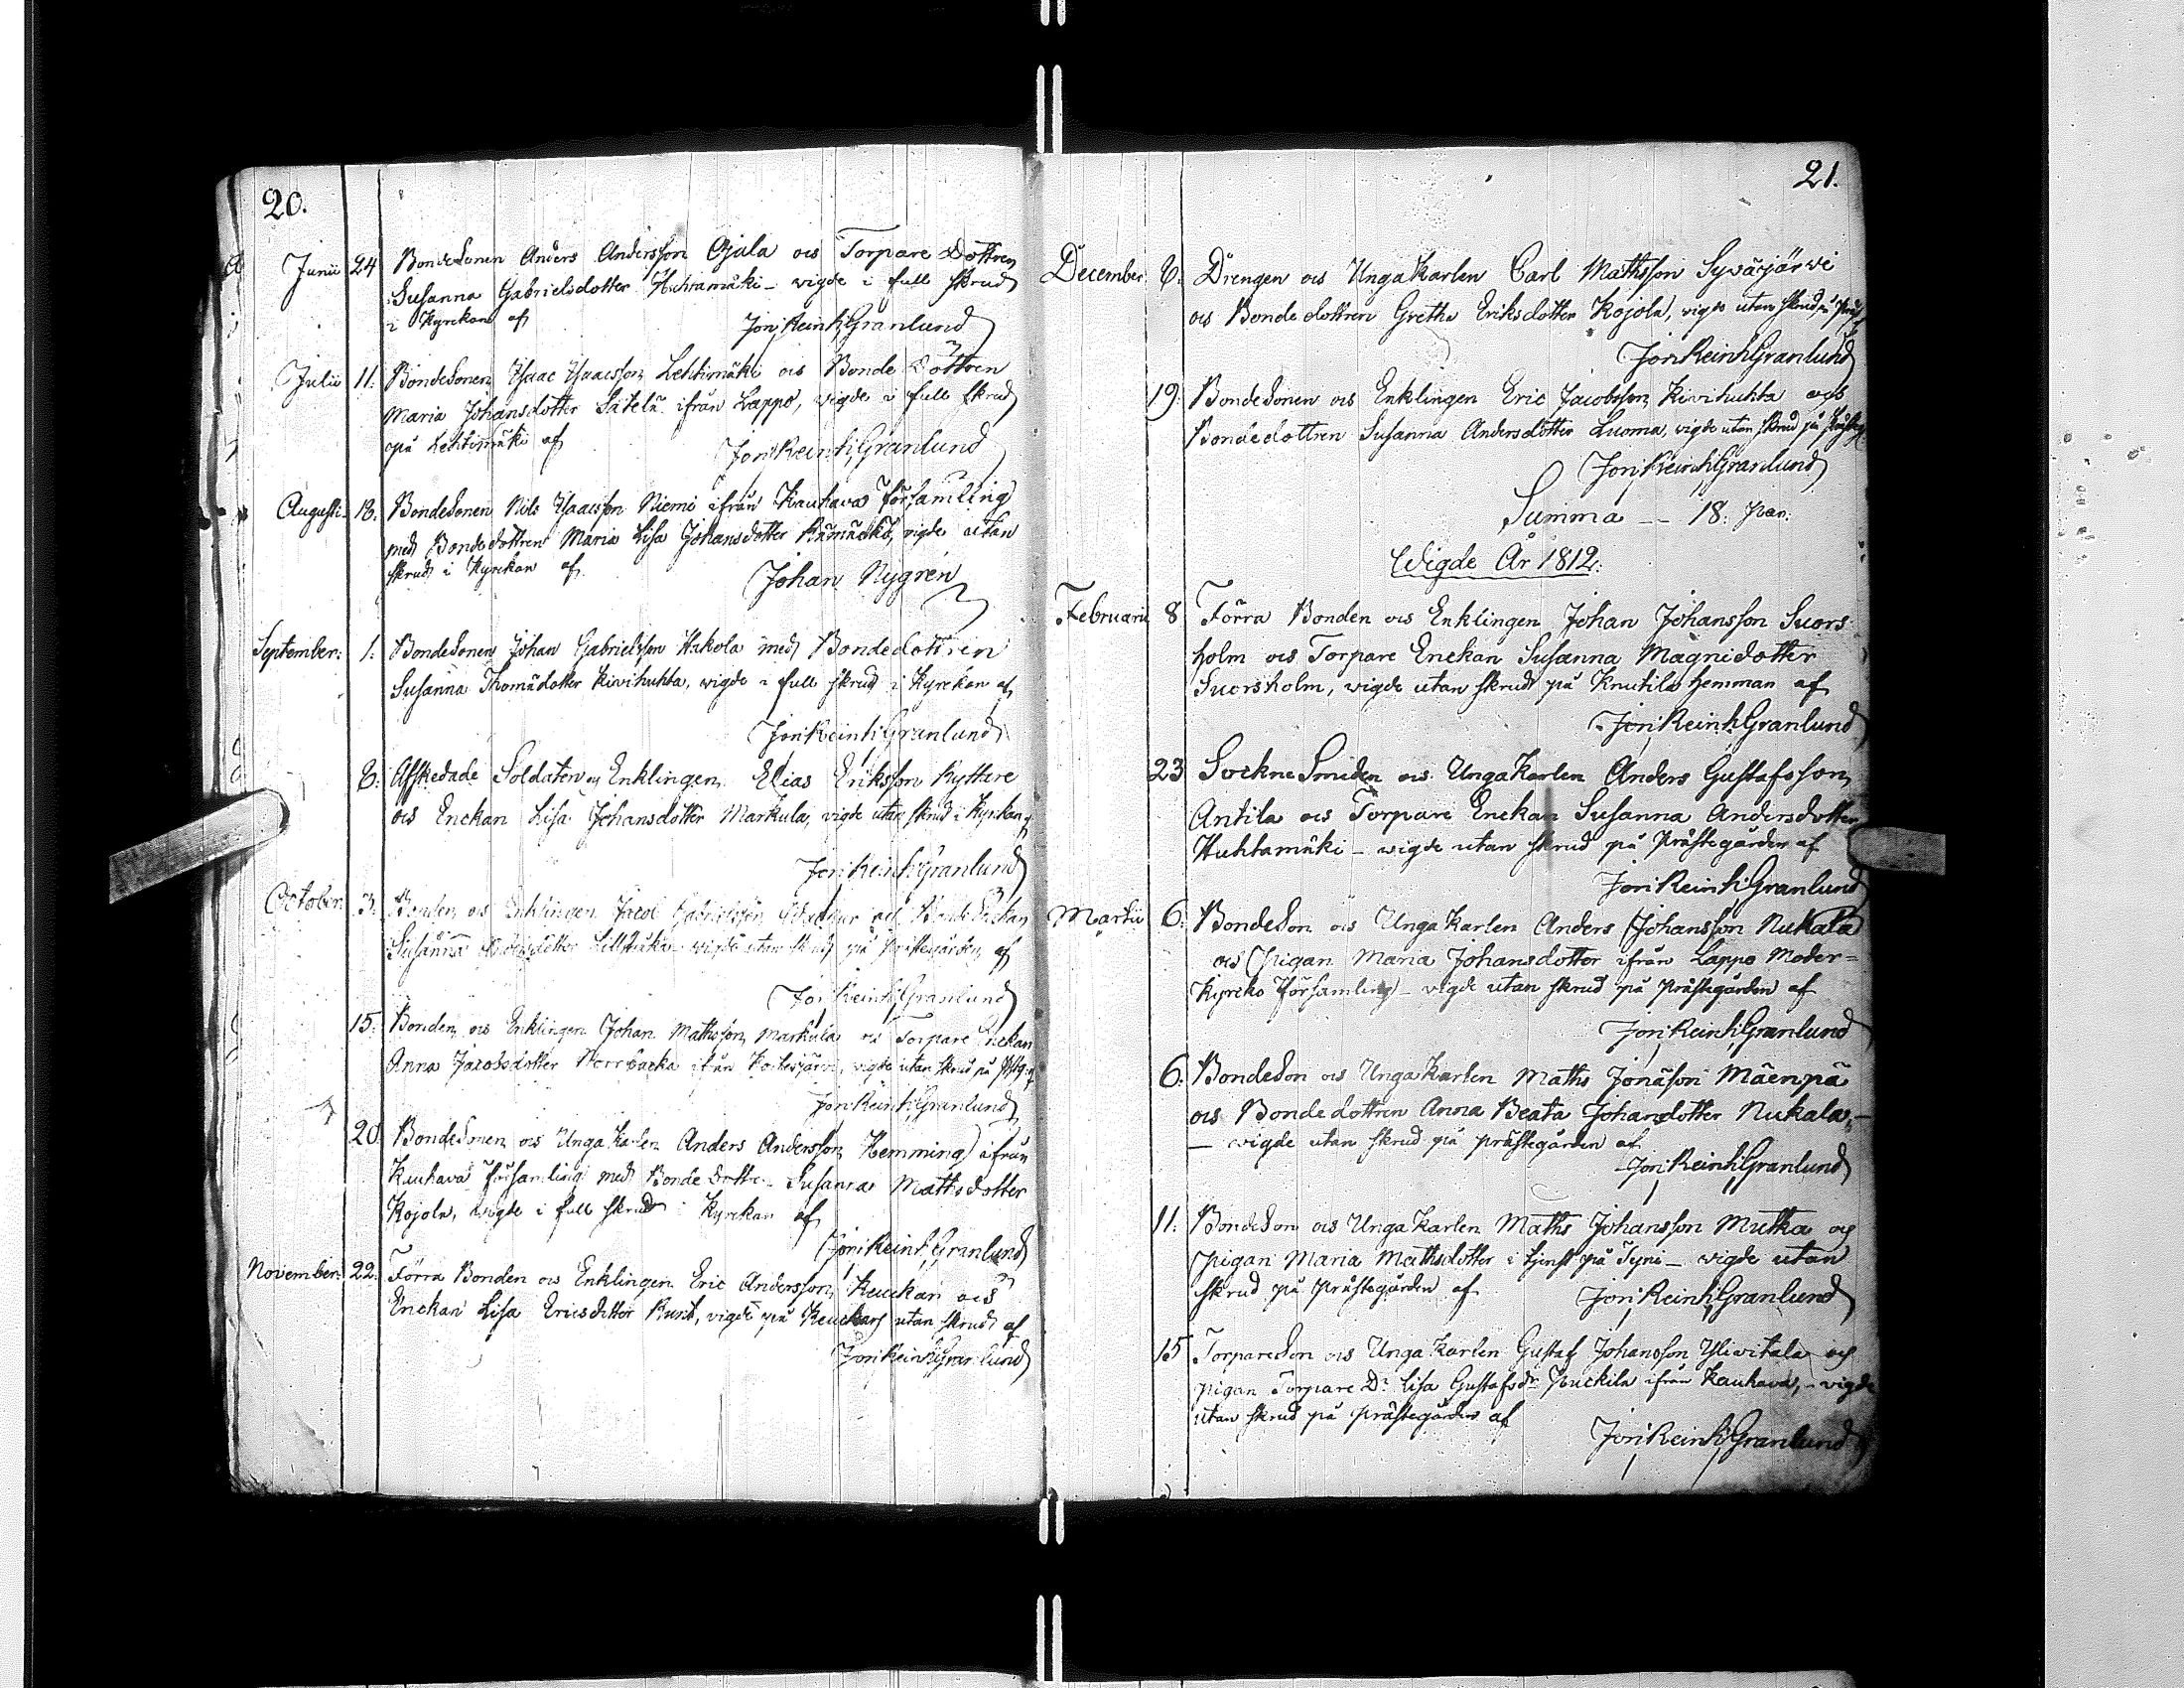 20.
Junii 24 Bondesonen Anders Andersson Ojala och Torpare Dottren
Susanna Gabrielsdotter Huhtamäki - vigde i full skrud
i Kyrckan af Jon: Reinh: Granlund
Julii 11. Bondesonen Isaac Isaacsson Lehtimäki och Bonde Dottren
Maria Johansdotter ifrån Lappo, vigde i full skrud
på Lehtimäki af Jon: Reinh: Granlund
Augusti Bondesonen Nils Isaacsson Niemi ifrån Kauhava Församling
med Bondedottren Maria Lisa Johansdotter vigde utan
skrud i Kyrckan af Johan Nygrén
September: 1. Bondesonen Johan Gabrielsson Hakola med Bondedottren
Susanna Thomædotter Kivihuhta, vigde i full skrud i Kyrckan af
Jon: Reinh: Granlund
Afskedade Soldaten och Enklingen Elias Eriksson Ryttare
och Enckan Lisa Johansdotter Markula, vigde utan skrud i Kyrkan af
Jon: Reinh: Granlund
October: 3. Bonden och Enklingen Jacob Gabrielsson och Bonde Enckan
Susanna vigde utan skrud på Prästegården af
Jon: Reinh: Granlund
15. Bonden och Enklingen Johan Mathsson Markula och Torpare Enckan
Anna Jacobsdotter Norrbacka ifrån Kortesjärvi, vigde utan skrud på
Jon: Reinh: Granlund
20. Bondesonen och Unga Karlen Anders Andersson Hemming ifrån
Kauhava Församling med Bonde Susanna Mathsdotter
Kojola, vigde i full skrud i Kyrckan af
Jon: Reinh: Granlund
November: 22. Förra Bonden och Enklingen Eric Andersson Keuckan och
Enckan Lisa Ericsdotter vigde på utan skrud af
Jon: Reinh: Granlund
21.
December Drengen och Unga Karlen Carl Mathsson Syväjärvi
och Bondedottren Gretha Eriksdotter Kojola, vigde utan skrud på
Jon: Reinh: Granlund
19. Bondesonen och Enklingen Eric Jacobsson Kivihuhta och
Bondedottren Susanna Andersdotter Luoma, vigde utan skrud på
Jon: Reinh: Granlund
Summa -- 18: Par:
Wigde År 1812.
Februarii 8 Förra Bonden och Enklingen Johan Johansson Suors
holm och Torpare Enckan Susanna Magnidotter
Suorsholm, vigde utan skrud på Knutila hemman af
Jon: Reinh: Granlund
23 Sockne Smeden och Unga Karlen Anders Gustafsson
Antila och Torpare Enckan Susanna Andersdotter
Huhtamäki - vigde utan skrud på Prästegården af
Jon: Reinh: Granlund
Martii 6. Bondeson och Unga Karlen Anders Johansson Nukala
och Pigan Maria Johansdotter ifrån Lappo Moder=
Kyrcko Församling - vigde utan skrud på Prästegården af
Jon: Reinh: Granlund
6. Bondeson och Unga Karlen Maths Jonæson Mäenpä
och Bondedottren Anna Beata Johansdotter Nukala, -
- vigde utan skrud på prästegården af
Jon: Reinh: Granlund
11. Bondeson och Unga Karlen Maths Johansson Mutka och
Pigan Maria Mathsdotter i tjenst på Tyni - vigde utan
skrud på Prästegården af Jon: Reinh: Granlund
15 Torpareson och Unga Karlen Gustaf Johansson Yliwitala och
pigan Torpare Dr. Lisa Gustafsdr. ifrån Kauhava, - vigde
utan skrud på prästegården af
Jon: Reinh: Granlund